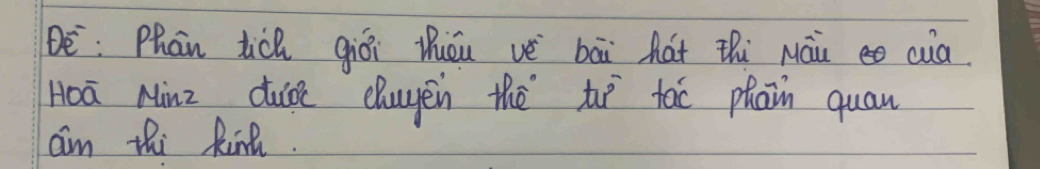 Đề: Phân tích giới thiệu về bài hát Thị Mầu của
Hoà Minz được chuyển thể từ tác phẩm quan
âm thị kính.